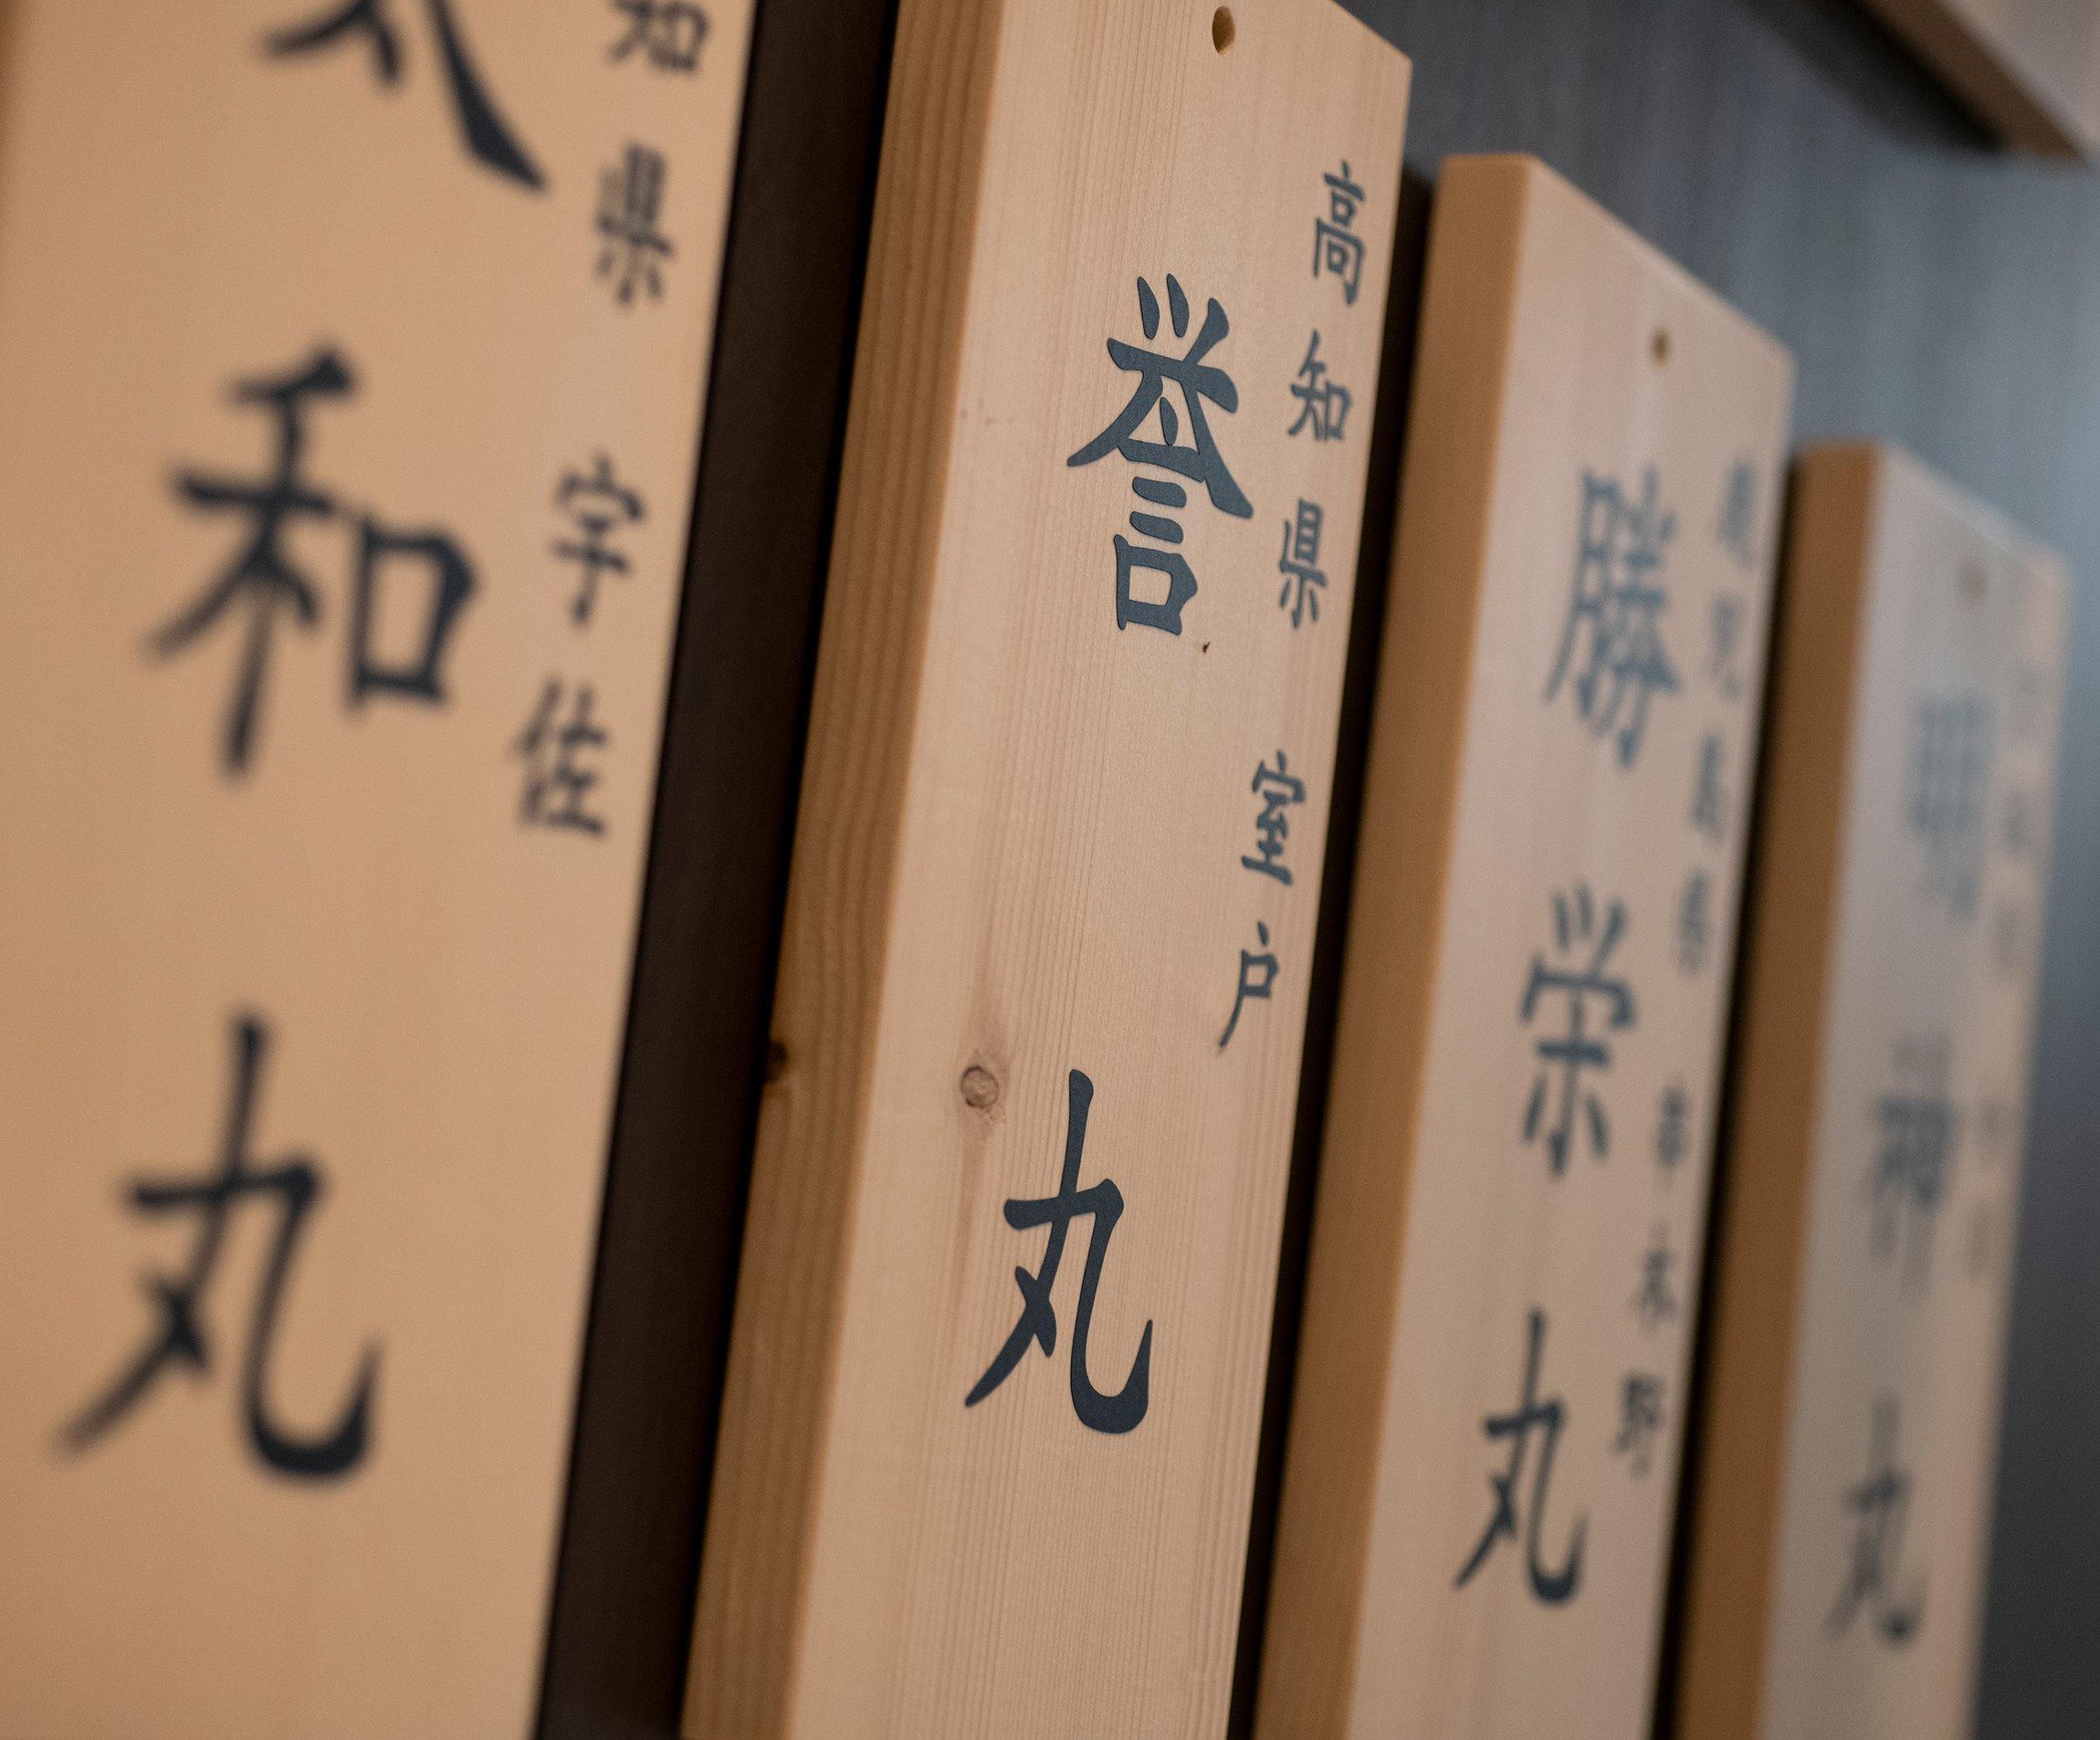 明神丸
鹿児島県 串木野
勝栄丸
高知県 室戸
誉丸
知県 宇佐
和丸